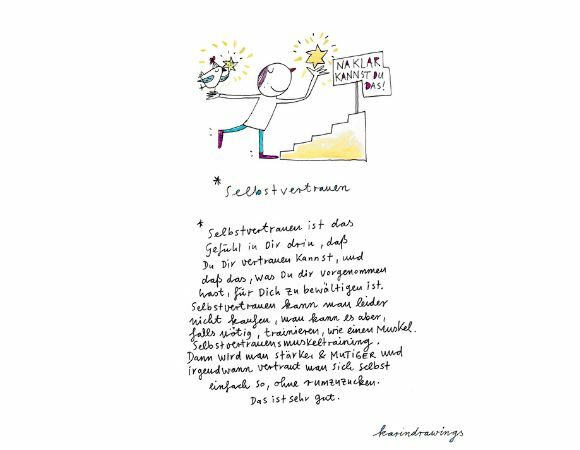 NA KLAR
KANNST DU
DAS!
* Selbstvertrauen
* Selbstvertrauen ist das
Gefühl in Dir drin, daß
Du Dir vertrauen kannst, und
daß das, was Du dir vorgenommen
hast, für Dich zu bewältigen ist.
Selbstvertrauen kann man leider
nicht kaufen, man kann es aber,
falls nötig, trainieren, wie einen Muskel.
Selbstvertrauensmuskeltraining.
Dann wird man stärker & MUTIGER und
irgendwann vertraut man sich selbst
einfach so, ohne rumzuzucken.
Das ist sehr gut.
karindrawings